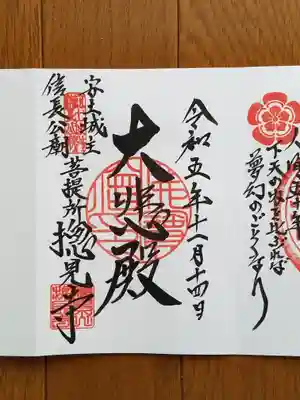 人間五十年
下天の内を比ぶれば
夢幻のごとくなり
令和五年十一月十四日
大悲殿
安土城主
信長公廟
菩提所
摠見寺